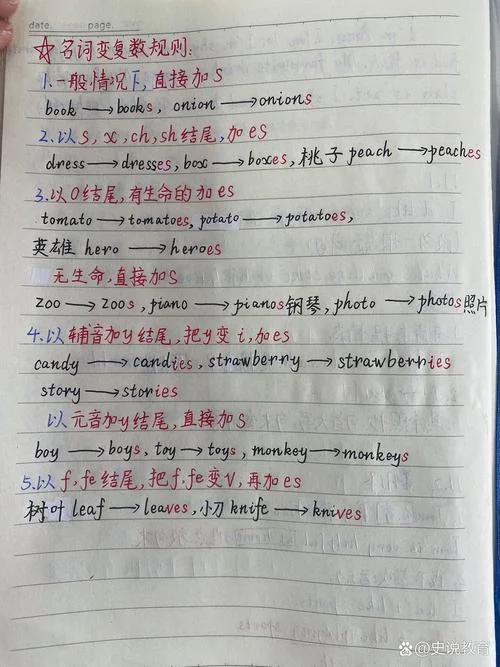 date. page.
☆名词变复数规则:
1.一般情况下,直接加S
book→books, onion→onions
2.以s,x,ch,sh结尾,加es
dress→dresses, box→boxes, 桃子 peach→peaches
3.以O结尾,有生命的加es
tomato→tomatoes, potato→potatoes,
英雄 hero→heroes
无生命,直接加S
zoo→zoos, piano→pianos钢琴, photo→photos照片
4.以辅音加y结尾,把y变i,加es
candy→candies, strawberry→strawberries
story→stories
以元音加y结尾,直接加S
boy→boys, toy→toys, monkey→monkeys
5.以f,fe结尾,把f,fe变V,再加es
树叶 leaf→leaves, 小刀 knife→knives
百家号@史说教育